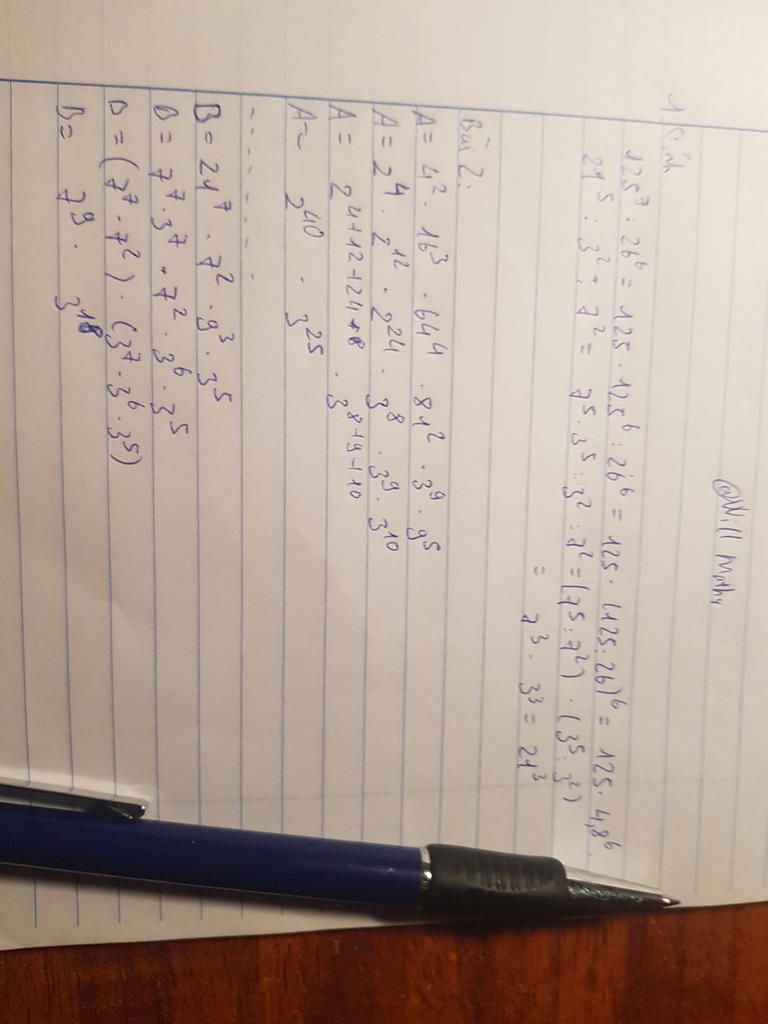 @Will Maths
1, Tính.
125⁷ : 26⁶ = 125 . 125⁶ : 26⁶ = 125 . (125 : 26)⁶ = 125 . 4,8⁶.
21⁵ : 3² : 7² = 7⁵ . 3⁵ : 3² : 7² = (7⁵ : 7²) . (3⁵ : 3²)
= 7³ . 3³ = 21³
Bài 2:
A = 4² . 16³ . 64⁴ . 81² . 3⁹ . 9⁵
A = 2⁴ . 2¹² . 2²⁴ . 3⁸ . 3⁹ . 3¹⁰
A = 2⁴⁺¹²⁺²⁴ . 3⁸⁺⁹⁺¹⁰
A = 2⁴⁰ . 3²⁵
B = 21⁷ . 7² . 9³ . 3⁵
B = 7⁷ . 3⁷ . 7² . 3⁶ . 3⁵
B = (7⁷ . 7²) . (3⁷ . 3⁶ . 3⁵)
B = 7⁹ . 3¹⁸